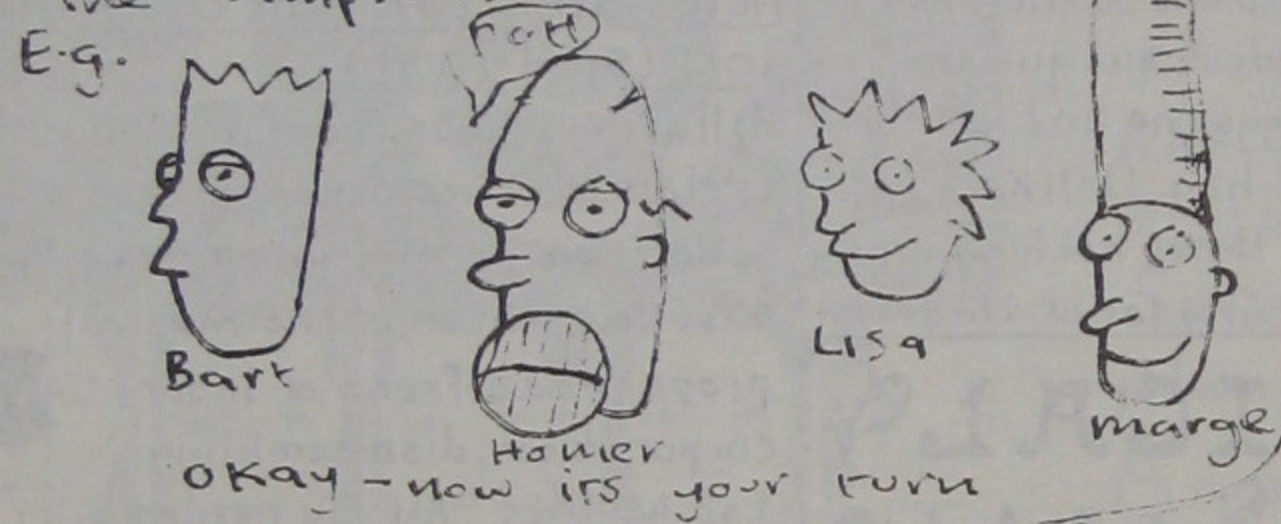 the
E.g.
Bart
Homer
Lisa
marge
okay - now its your turn